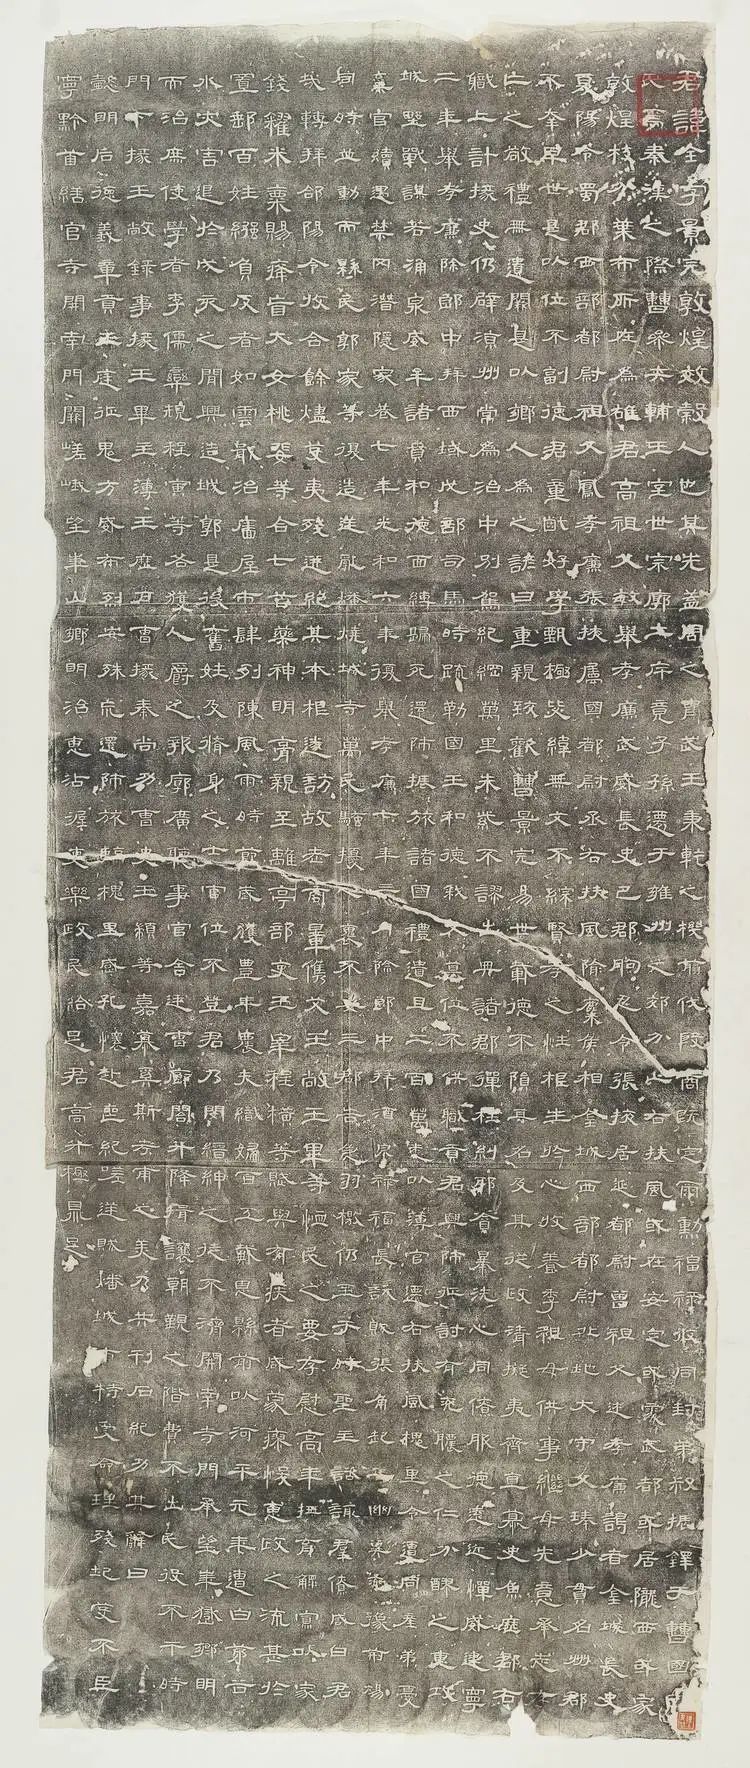 君諱全字景完敦煌效穀人也其先蓋周之胄武王秉乾之機翦伐殷商既定爾勳福祿攸同封弟叔振鐸于曹國
氏焉秦漢之際曹參夾輔王室世宗廓土斥竟子孫遷于雍州之郊分止右扶風或在安定或處武都或居隴西或家
敦煌枝分葉布所在為雄君高祖父敏舉孝廉武威長史巴郡朐忍令張掖居延都尉曾祖父述孝廉謁者金城長史
夏陽令蜀郡西部都尉祖父鳳孝廉張掖屬國都尉丞右扶風隃麋侯相金城西部都尉北地大守父琫少貫名州郡
不幸早世是以位不副德君童齔好學甄極毖緯無文不綜賢孝之性根生於心收養季祖母供事繼母先意承志存
亡之敬禮無遺闕是以鄉人為之諺曰重親致歡曹景完易世載德不隕其名及其從政清擬夷齊直慕史魚歷郡右
職上計掾史仍辟涼州常為治中別駕紀綱萬里朱紫不謬出典諸郡彈枉糾邪貪暴洗心同僚服德遠近憚威建寧
二年舉孝廉除郎中拜西域戊部司馬時疏勒國王和德弒父篡位不供職貢君興師征討有兗膿之仁分醪之惠攻
城野戰謀若涌泉威牟諸賁和德面縛歸死還師振旅諸國禮遺且二百萬悉以簿官遷右扶風槐里令遭同產弟憂
棄官續遇禁网潛隱家巷七年光和六年復舉孝廉七年三月除郎中拜酒泉祿福長訞賊張角起冀兗豫荊楊
同時並動而縣民郭家等復造逆亂燔燒城寺萬民騷擾人裹不安三郡告急羽檄仍至于時聖主諮諏群僚咸曰君
哉轉拜郃陽令收合餘燼芟夷殘迸絕其本根遂訪故老商量儁艾王敞王畢等恤民之要存慰高年撫育鰥寡以家
錢糴米粟賜癃盲大女桃斐等合七首藥神明膏親至離亭部吏王皐程橫等賦與有疾者咸蒙瘳悛惠政之流甚於
置郵百姓繈負反者如雲戢治廧屋市肆列陳風雨時節歲獲豐年農夫織婦百工戴恩縣前以河平元年遭白茅谷
水灾害退於戌亥之間興造城郭是後舊姓及脩身之士官位不登君乃閔縉紳之徒不濟開南寺門承望華嶽鄉明
而治庶使學者李儒欒規程寅等各獲人爵之報廓廣聽事官舍廷曹廊閤升降揖讓朝覲之階費不出民役不干時
門下掾王敞錄事掾王畢主簿王歷戶曹掾秦尚功曹史王顓等嘉慕奚斯考甫之美乃共刊石紀功其辭曰
懿明后德義章貢王庭征鬼方威布烈安殊巟還師旅臨槐里感孔懷赴喪紀嗟逆賊燔城市特受命理殘圮芟不臣
寧黔首繕官寺開南門闕嵯峨望華山鄉明治惠沾渥吏樂政民給足君高升極鼎足